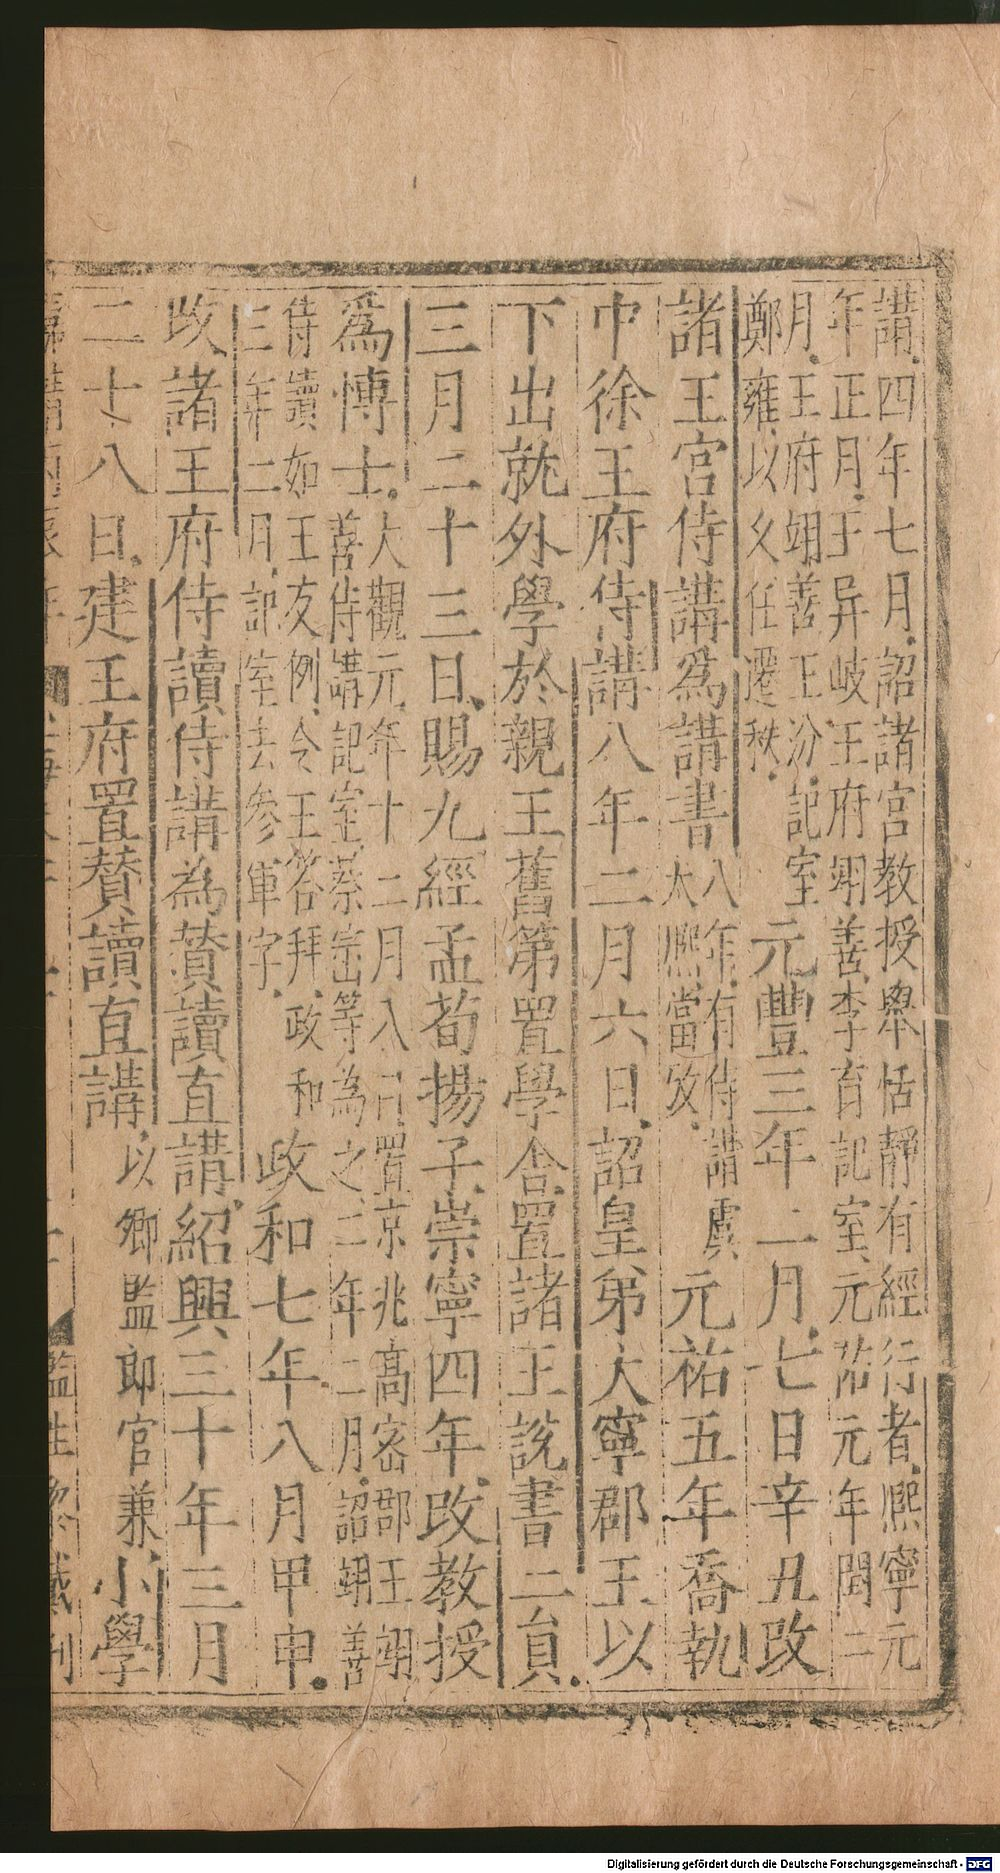 講四年七月詔諸宮教授舉恬靜有經行者熙寧元
年正月于异岐王府翊善李育記室元祐元年閏二
月王府翊善王汾記室
鄭雍以久任遷秩
元豐三年二月七日辛丑改
諸王宮侍講爲講書
八年有侍講虞
太熙當攷
元祐五年喬執
中徐王府侍講八年二月六日詔皇弟大寧郡王以
下出就外學於親王舊第置學舍置諸王說書二員
三月二十三日賜九經孟荀揚子崇寧四年改教授
爲博士
大觀元年十二月八日置京兆高密郡王翊
善侍講記室蔡崈等為之二年二月詔翊善
侍讀如王友例令王答拜政和
三年二月記室去參軍字
政和七年八月甲申
改諸王府侍讀侍講為贊讀直講紹興三十年三月
二十八日建王府置贊讀直講
以卿監郎官兼
小學
監生
戩刊
Digitalisierung gefördert durch die Deutsche Forschungsgemeinschaft - DFG